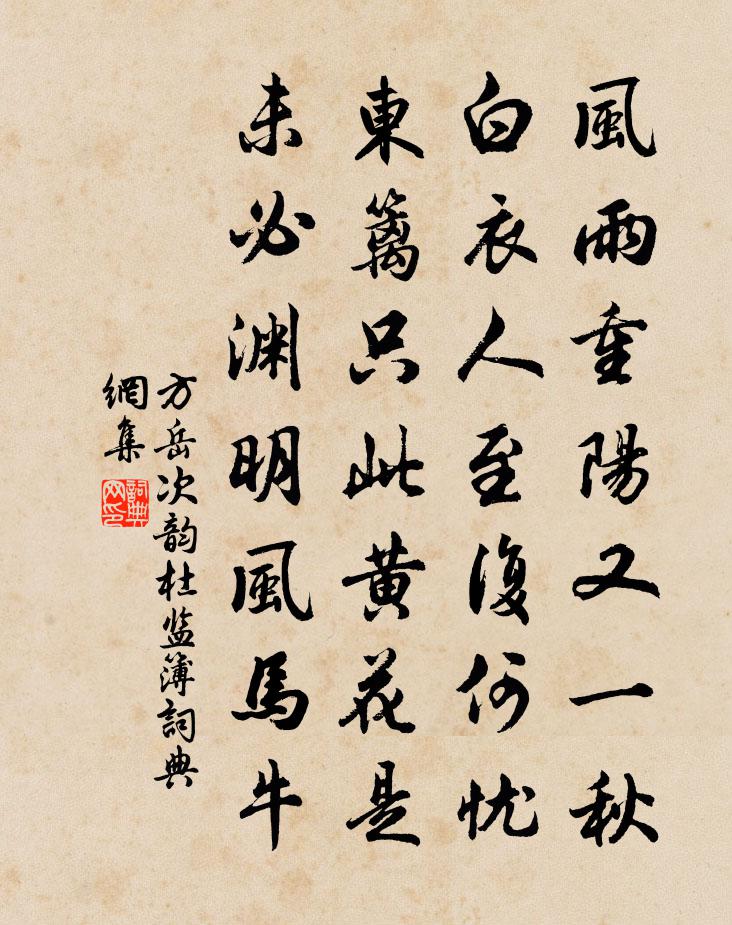 風雨重陽又一秋
白衣人至復何忧
東篱只此黄花是
未必渊明風馬牛
方岳次韵杜监簿詞典
網集
詞典
网印